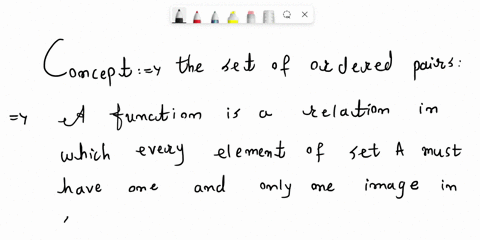 Concept :=> the set of ordered pairs:
=> A function is a relation in
which every element of set A must
have one and only one image in